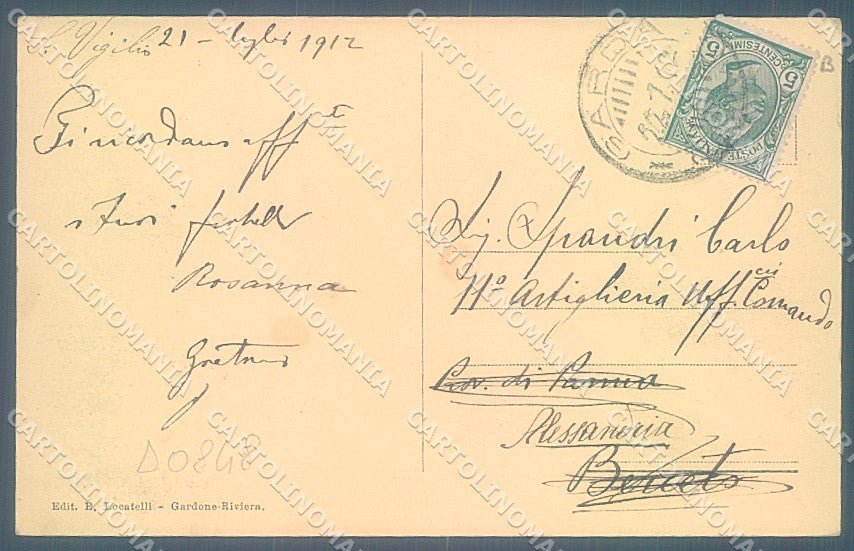 S. Vigilio 21 - luglio 1912
Ti ricordano aff.
i tuoi fratelli
Rosanna
D0848
Edit. E. Locatelli - Gardone-Riviera.
GARDA
CENTESIMI
5
5
POSTE ITALIANE
B
Sig. Spandri Carlo
11º Artiglieria Uff.cii Comando
Prov. di Parma
Alessandria
Berceto
CARTOLINOMANIA